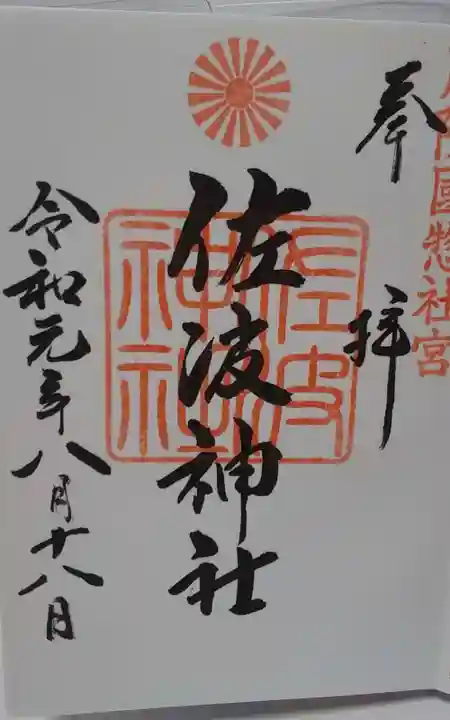 周防國惣社宮
奉拝
佐波神社
佐波神社
令和元年八月十八日